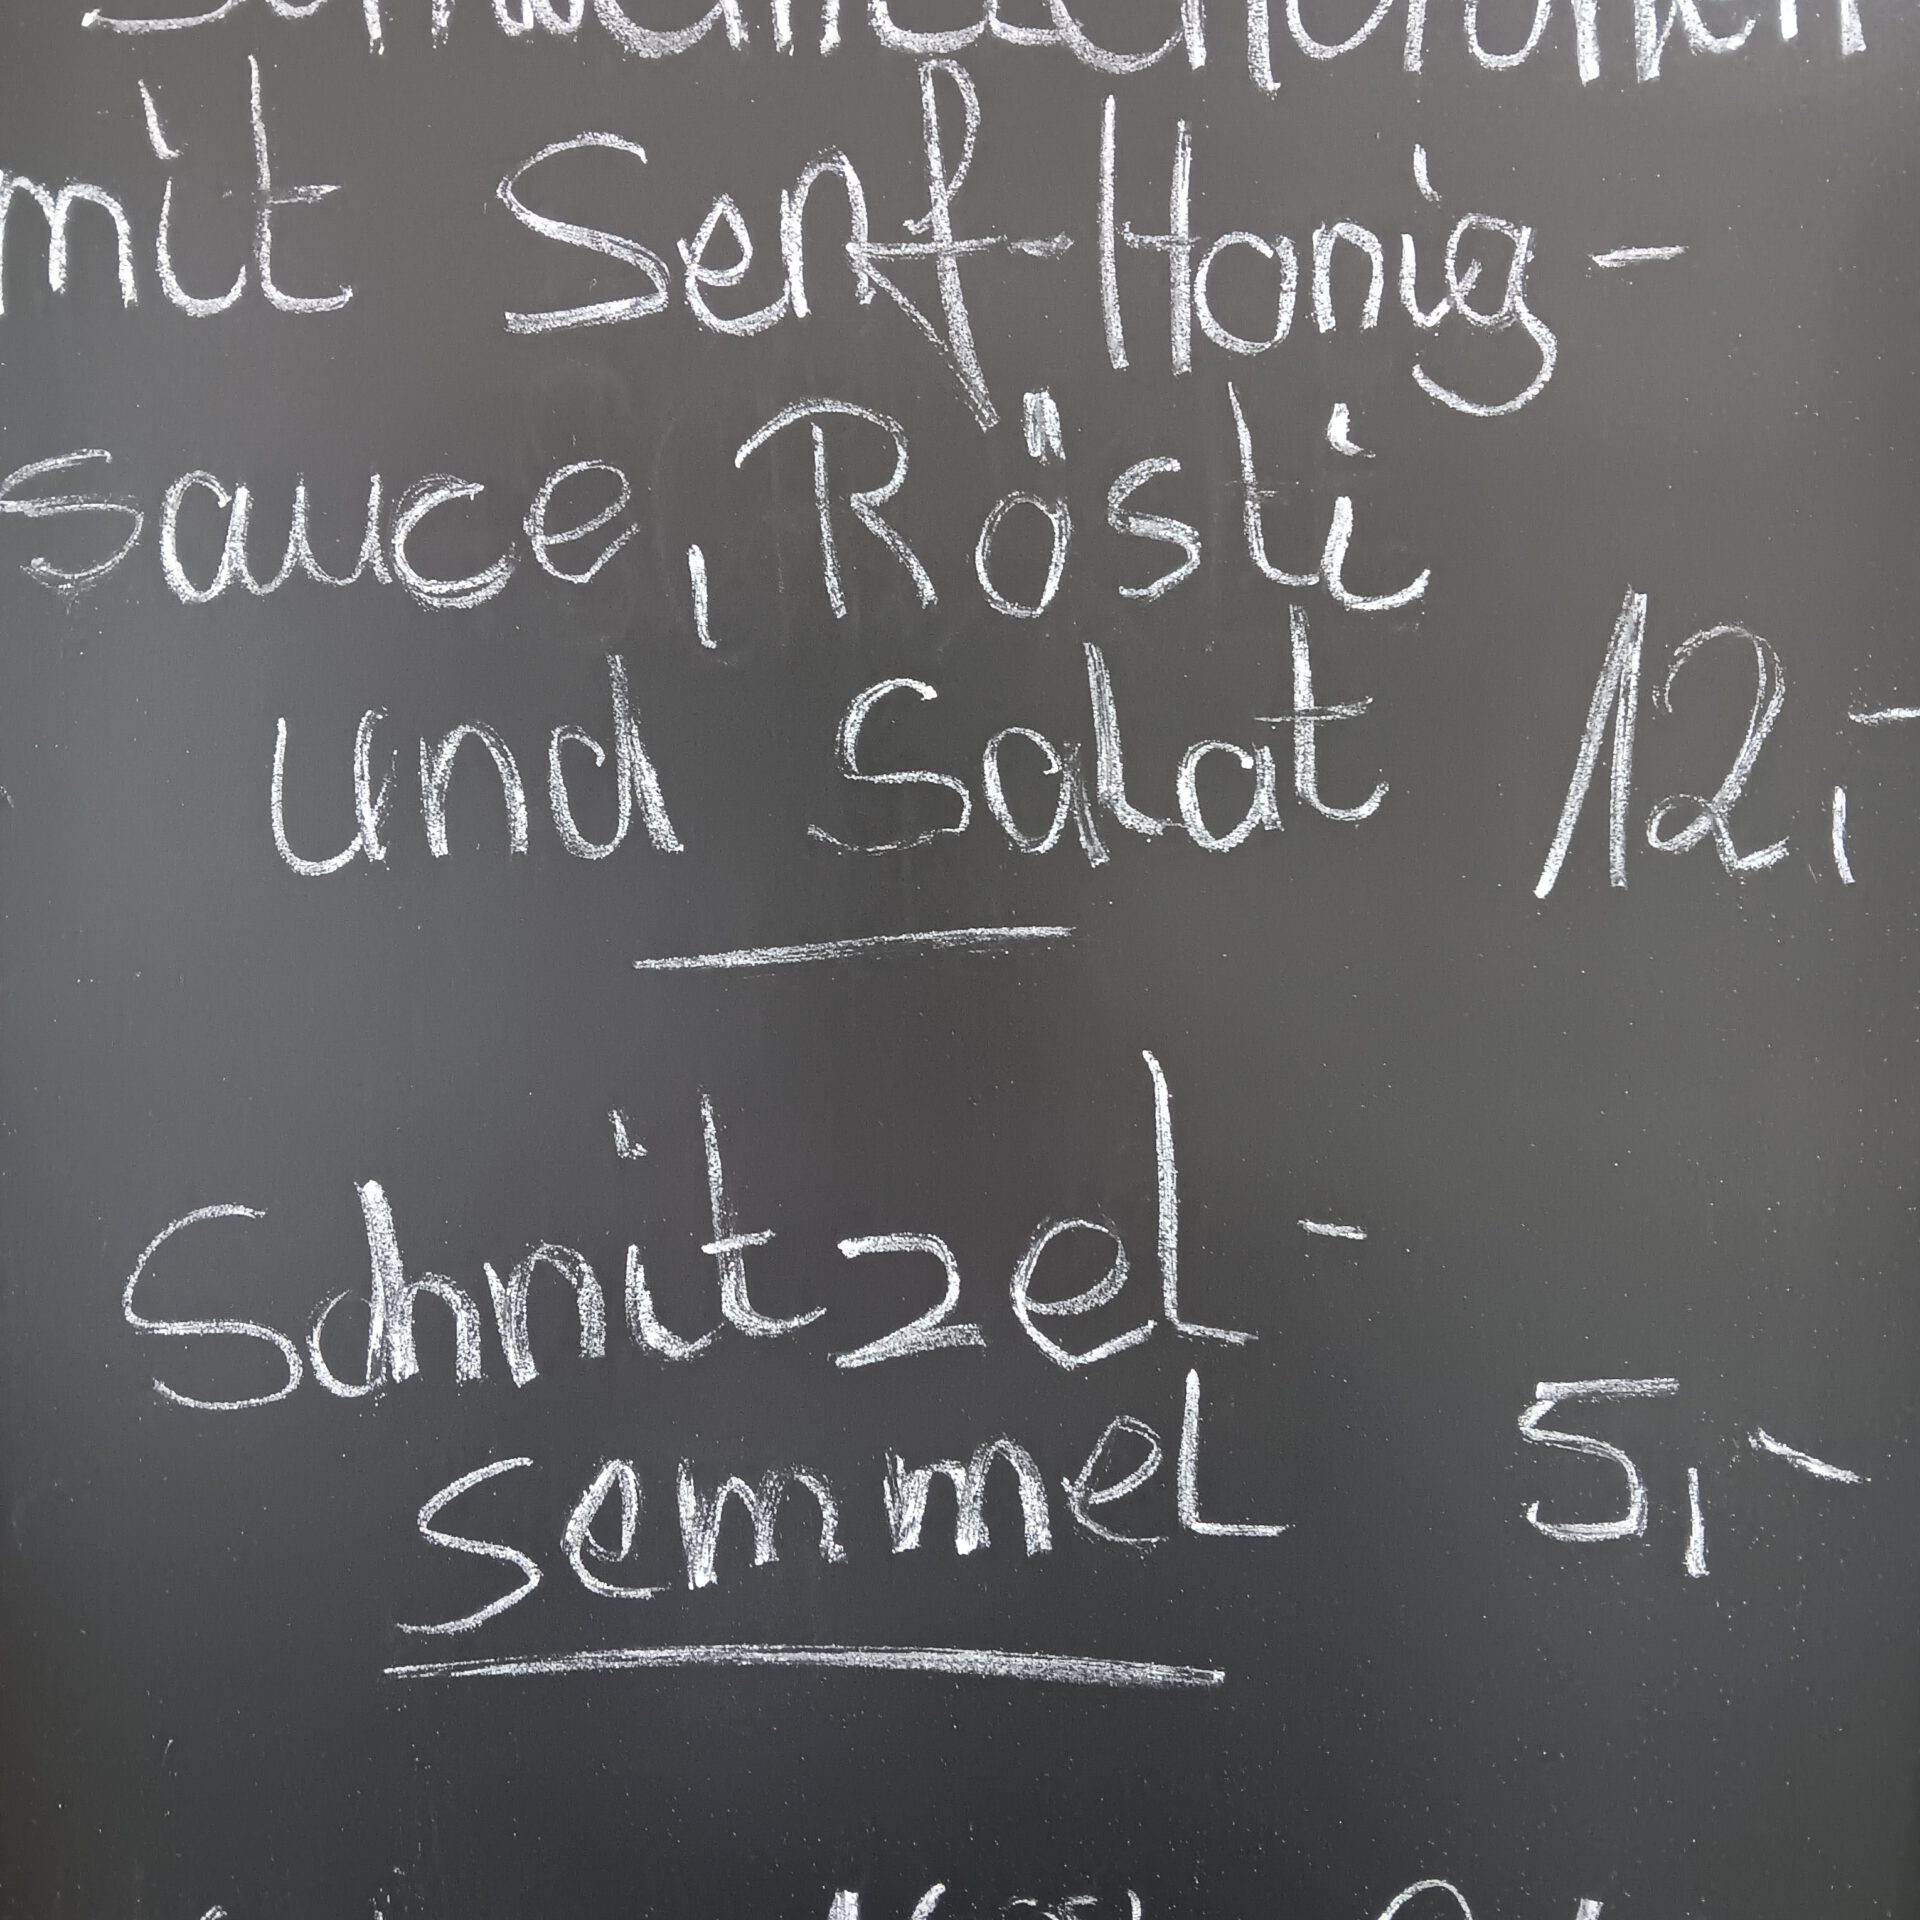 mit Senf-Honig-
sauce, Rösti
und Salat 12,-
Schnitzel-
semmel 5,-